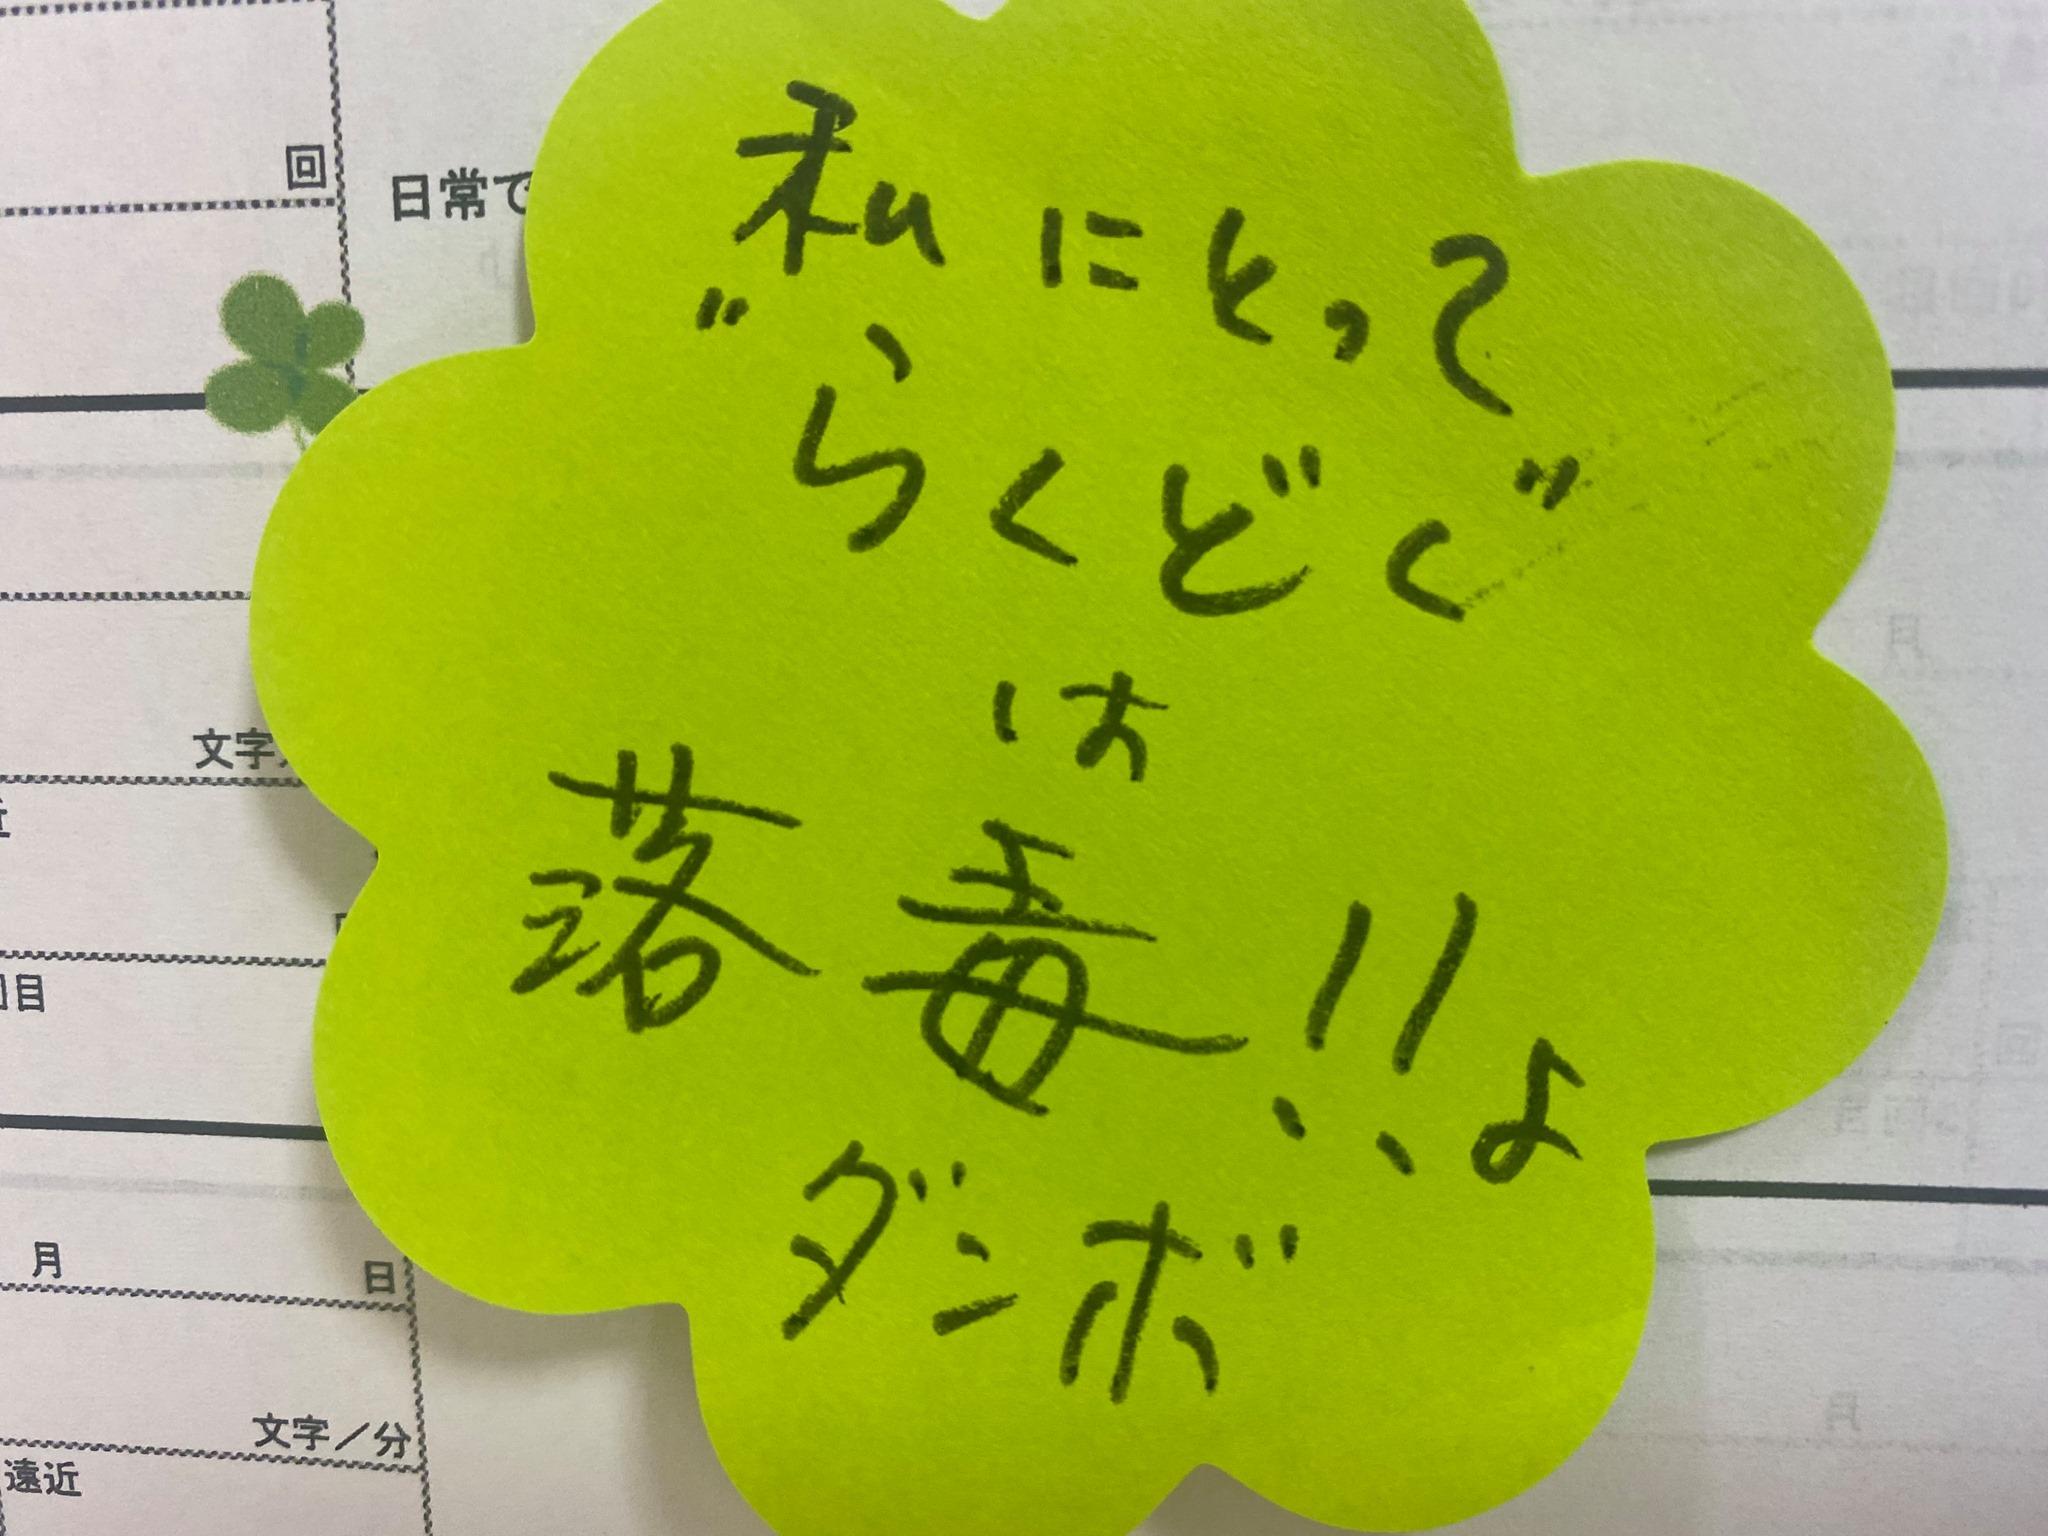 私にとって
"らくどく"
は
落毒!!よ
ダンボ
回
日常で
文字
回目
月
日
文字／分
遠近